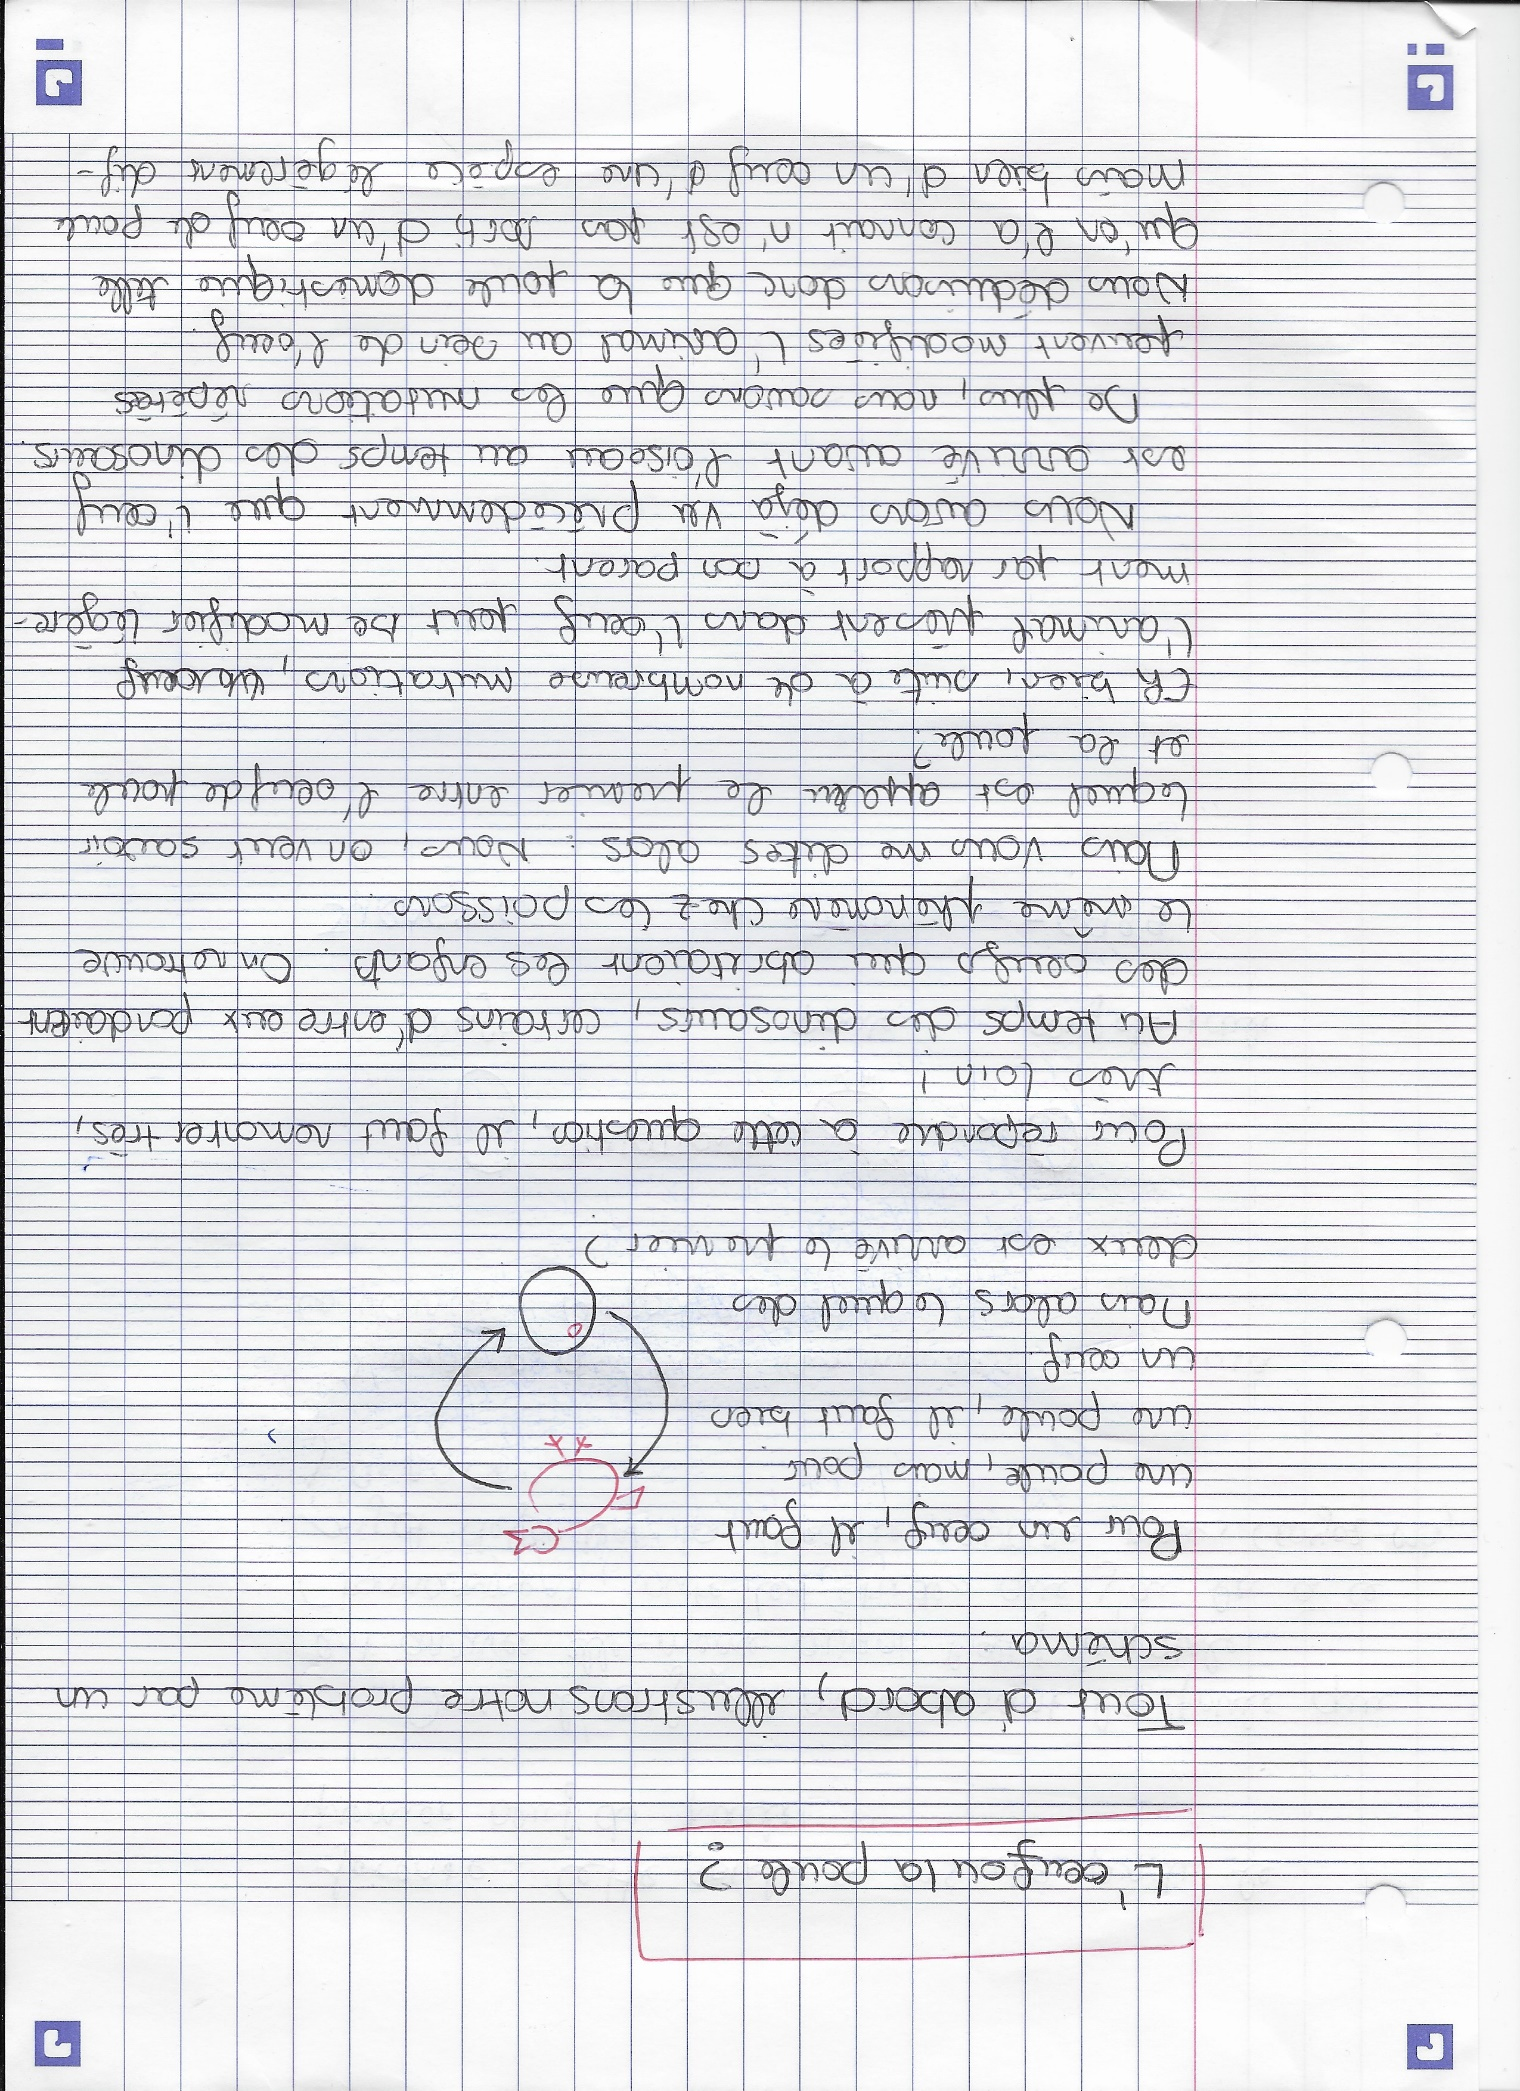 L'oeuf ou la poule ?
Tout d'abord, illustrons notre problème par un
schéma.
Pour un oeuf, il faut
une poule, mais pour
une poule, il faut bien
un oeuf.
Mais alors lequel des
deux est arrivé le premier ?
Pour répondre à cette question, il faut remonter très,
très loin !
Au temps des dinosaures, certains d'entre eux pondaient
des oeufs qui abritaient les enfants. On retrouve
le même phénomène chez les poissons
Mais vous me dites alors : Nous, on veut savoir
lequel est apparu le premier entre l'oeuf de poule
et la poule?
Eh bien, suite à de nombreuse mutations,
l'animal présent dans l'oeuf peut se modifier légère-
ment par rapport à son parent.
Nous avons déjà vu précédemment que l'oeuf
est arrivé avant l'oiseau au temps des dinosaurs.
De plus, nous savons que les mutations répétés
peuvent modifiées l'animal au sein de l'oeuf.
Nous déduisons donc que la poule domestique telle
qu'on l'a connait n'est pas sorti d'un oeuf de poule
mais bien d'un oeuf d'une espèce légèrement dif-